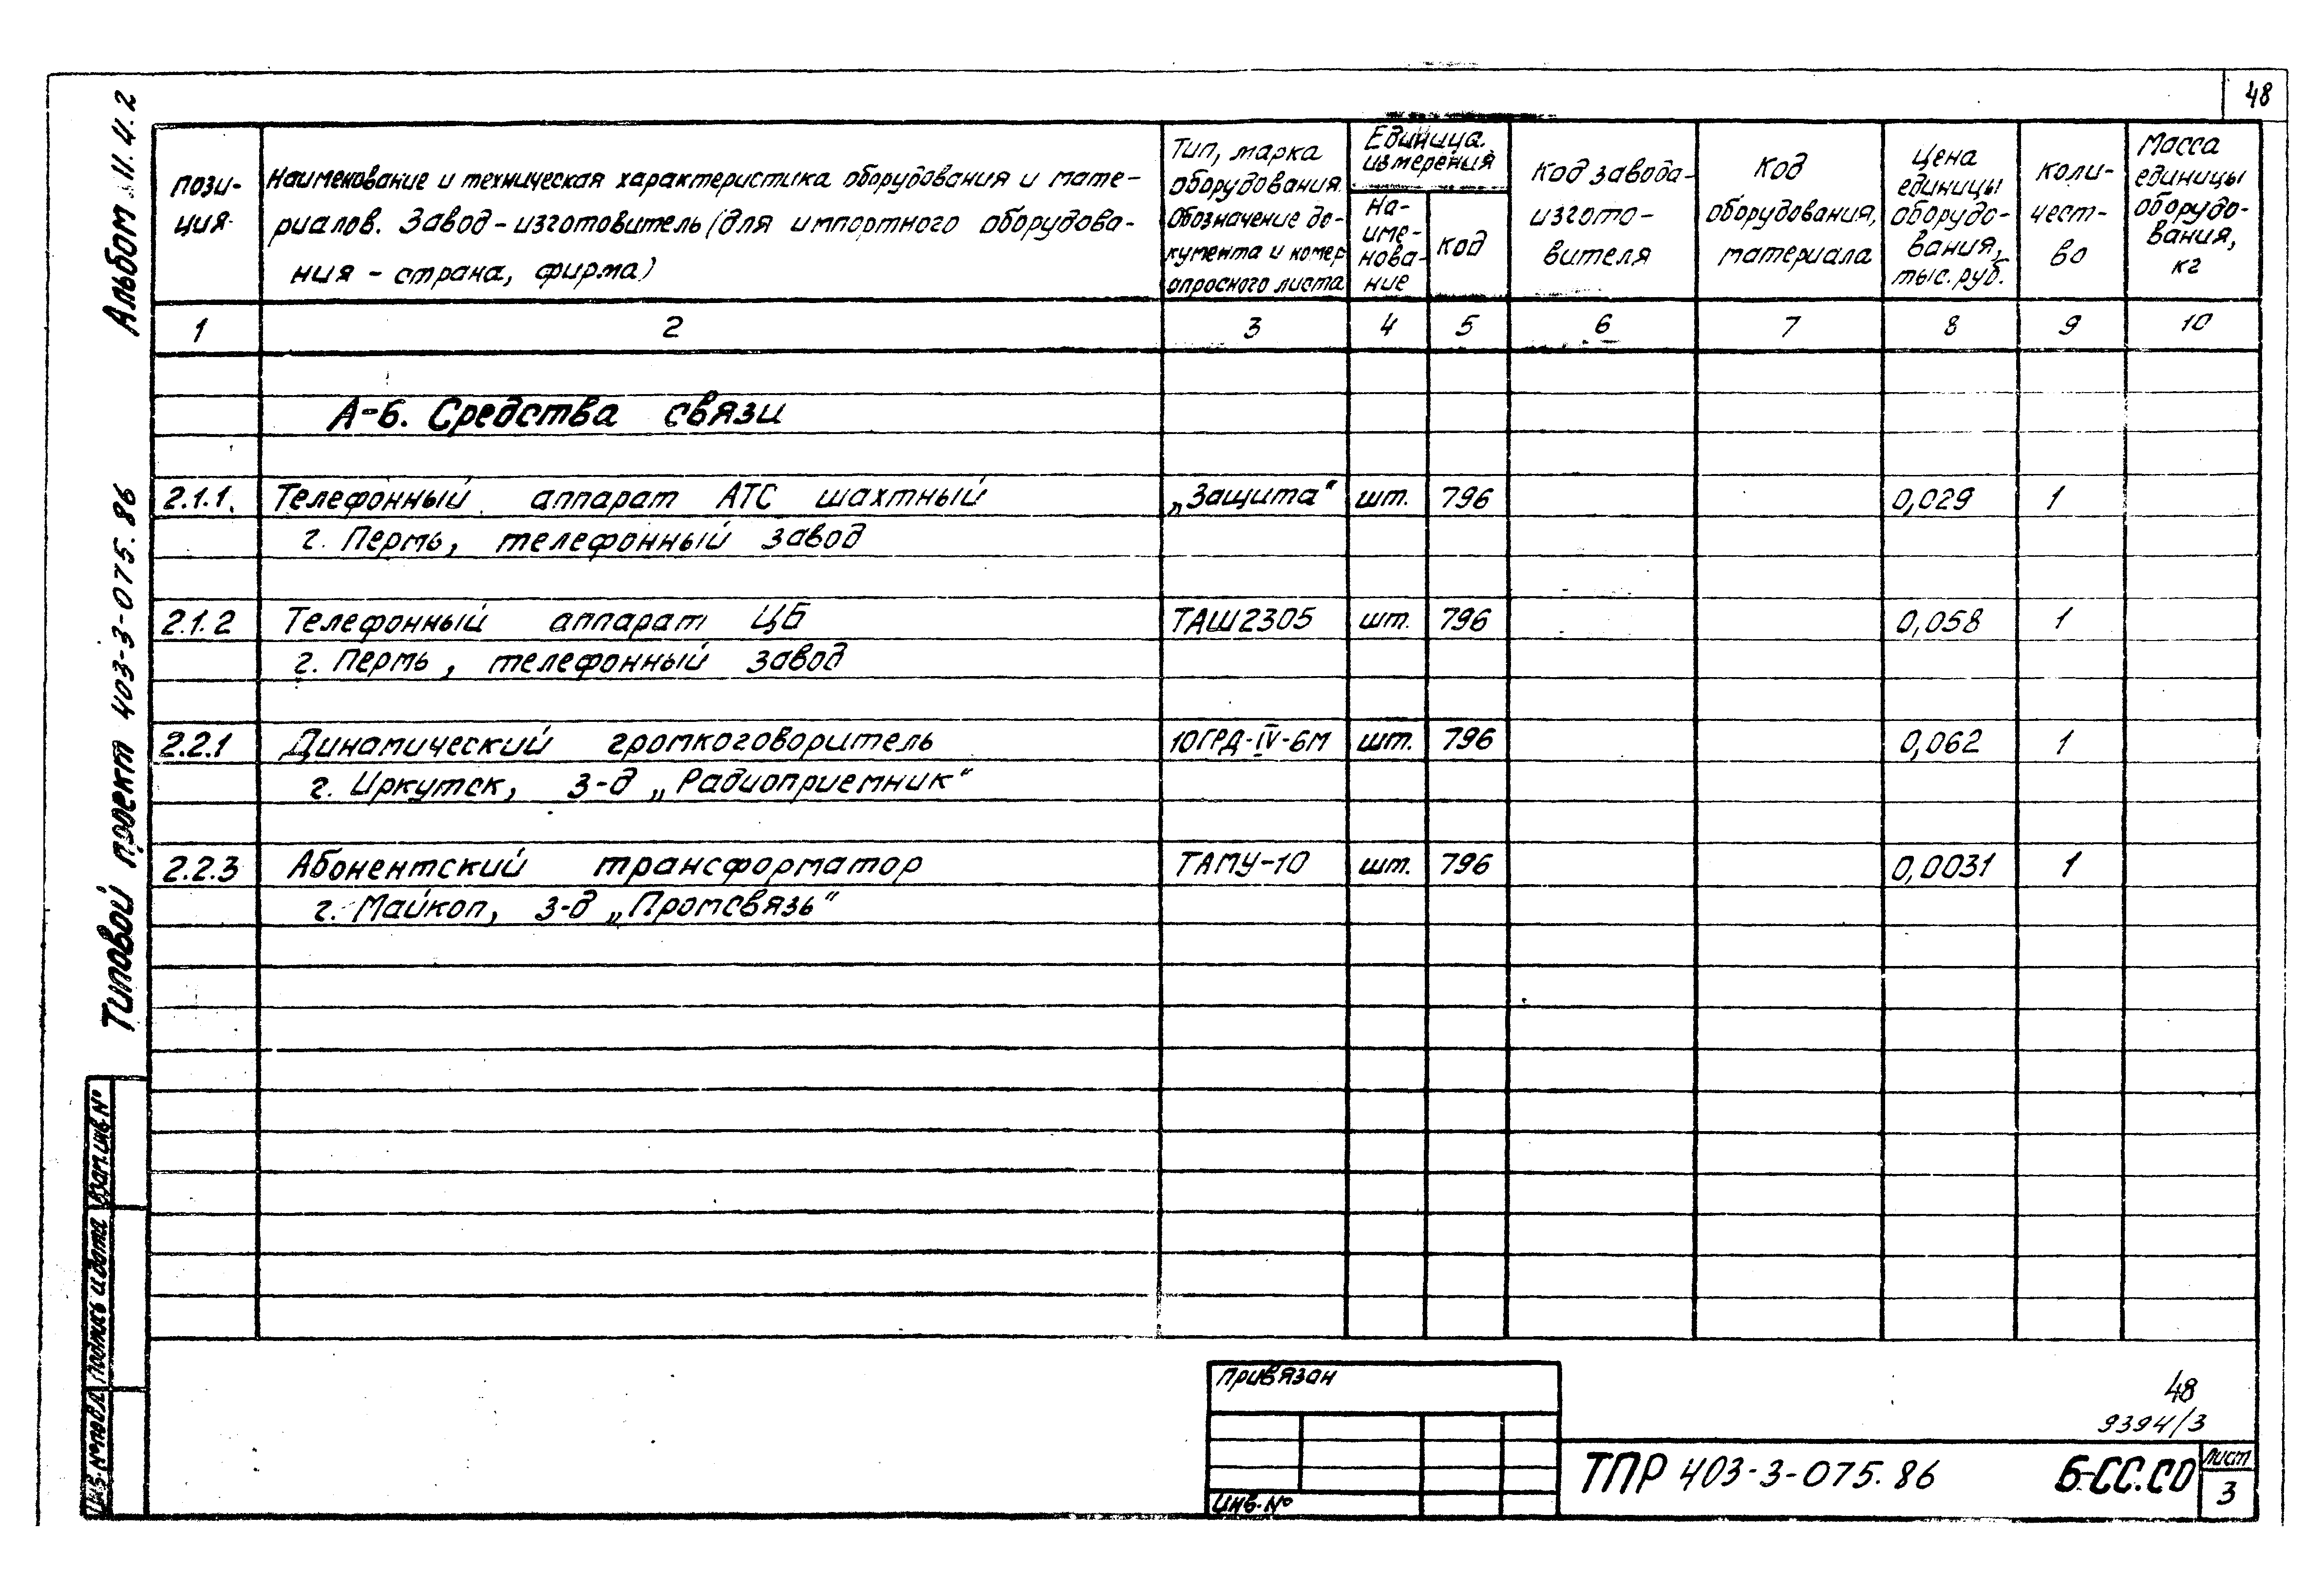 48
Альбом II.4.2
Типовой проект 403-3-075.86
Пози-
ция
Наименование и техническая характеристика оборудования и мате-
риалов. Завод-изготовитель (для импортного оборудова-
ния - страна, фирма)
Тип, марка
оборудования.
Обозначение до-
кумента и номер
опросного листа
Единица
измерения
На-
име-
нова-
ние
Код
Код завода-
изгото-
вителя
Код
оборудования,
материала
Цена
единицы
оборудо-
вания,
тыс. руб.
Коли-
чест-
во
Масса
единицы
оборудо-
вания,
кг
1 2 3 4 5 6 7 8 9 10
А-6. Средства связи
2.1.1. Телефонный аппарат АТС шахтный „Защита“ шт. 796 0,029 1
г. Пермь, телефонный завод
2.1.2 Телефонный аппарат ЦБ ТАШ2305 шт. 796 0,058 1
г. Пермь, телефонный завод
2.2.1 Динамический громкоговоритель 10ГРД-IV-6М шт. 796 0,062 1
г. Иркутск, з-д „Радиоприемник“
2.2.3 Абонентский трансформатор ТАМУ-10 шт. 796 0,0031 1
г. Майкоп, з-д „Промсвязь“
Взам.инв.№
Подпись и дата
Инв.№подл.
Привязан
Инв.№
48
9394/3
ТПР 403-3-075.86 6-СС.СО
Лист
3